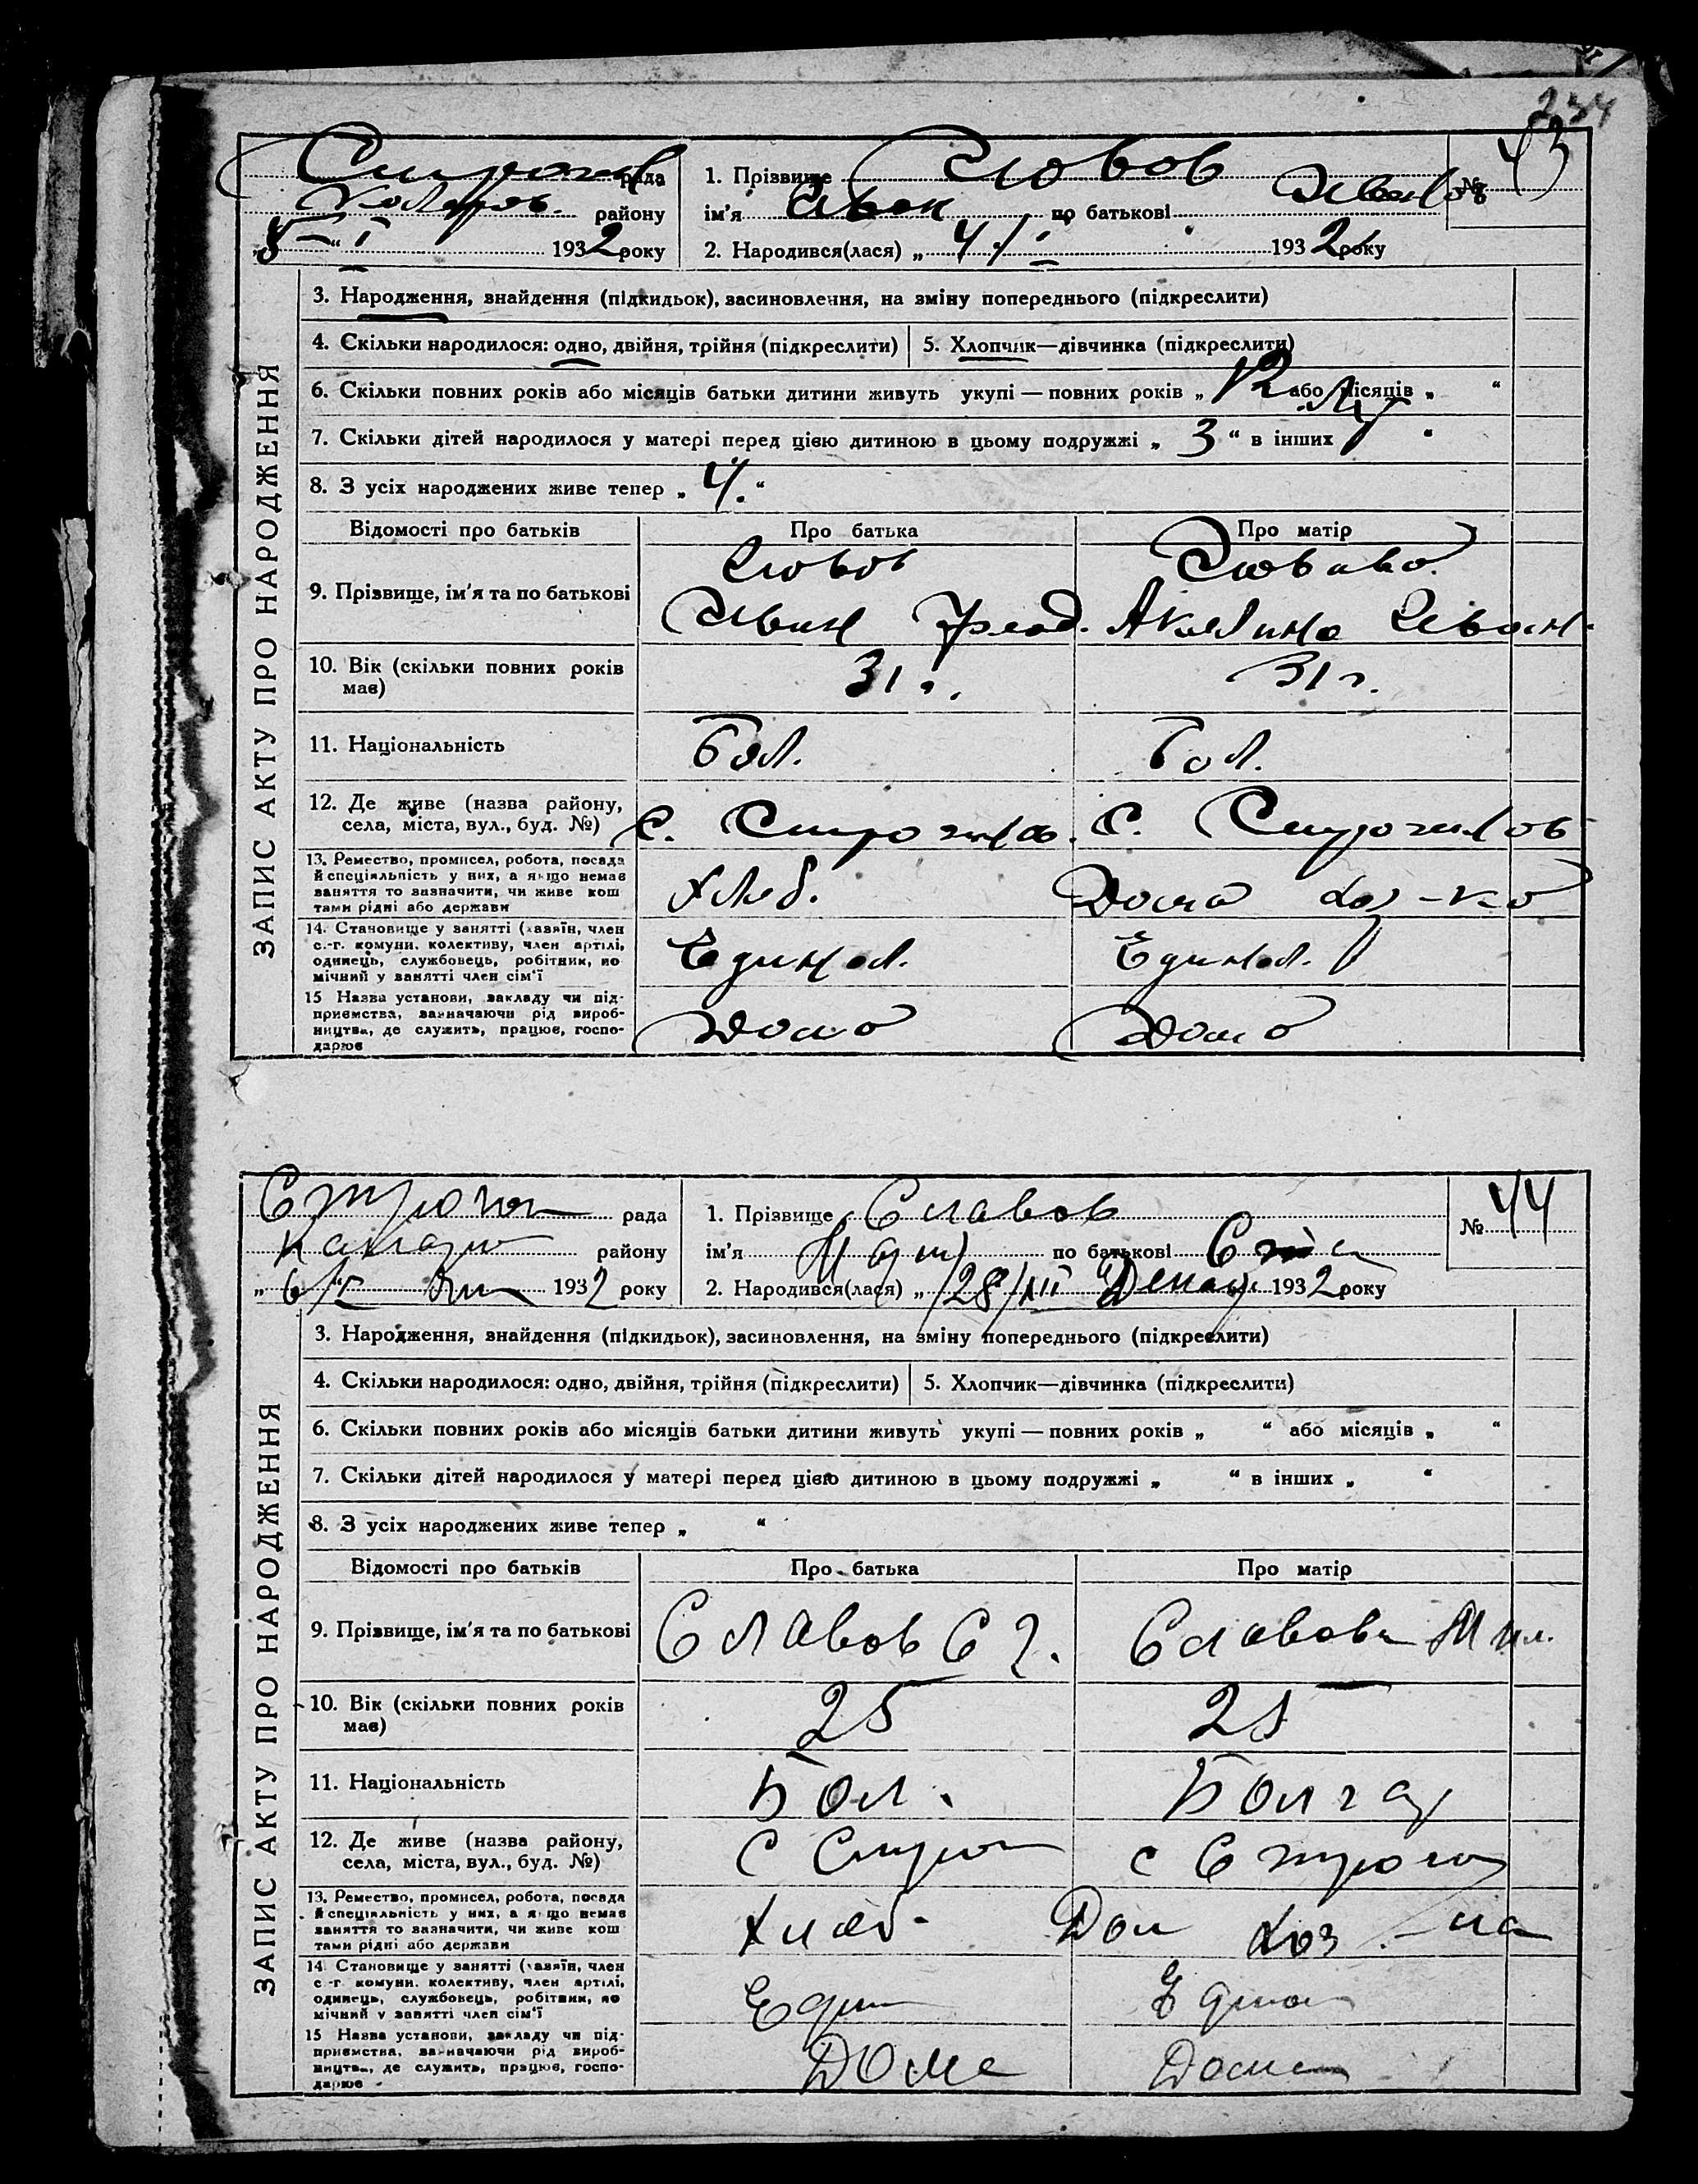 234
рада
Коларов. району
1932 року
1. Прізвище Словов
№ 43
ім'я Иван по батькові Иванов
2. Народився(лася) „ 4/I 1932 року
ЗАПИС АКТУ ПРО НАРОДЖЕННЯ
3. Народження, знайдення (підкидьок), засиновлення, на зміну попереднього (підкреслити)
4. Скільки народилося: одно, двійня, трійня (підкреслити)
5. Хлопчик—дівчинка (підкреслити)
6. Скільки повних років або місяців батьки дитини живуть укупі — повних років „ 12 або місяців „ “
7. Скільки дітей народилося у матері перед цією дитиною в цьому подружжі „ 3 “ в інших “
8. З усіх народжених живе тепер „ 4. “
Відомості про батьків Про батька Про матір
9. Прізвище, ім'я та по батькові
Словов
Иван
Акилина Иван.
10. Вік (скільки повних років має)
31 г.
31 г.
11. Національність
Бол.
Бол.
12. Де живе (назва району, села, міста, вул., буд. №)
с.
с.
13. Ремество, промисел, робота, посада й спеціяльність у них, а якщо немає заняття то зазначити, чи живе коштами рідні або держави
Хлеб.
Дома хоз-ка
14. Становище у занятті (хазяїн, член с.-г. комуни, колективу, член артілі, одинець, службовець, робітник, помічний у занятті член сім'ї
Единол.
Единол.
15 Назва установи, закладу чи підприємства, зазначаючи рід виробництва, де служить, працює, господарює
Дома
Дома
рада
району
1932 року
1. Прізвище Славов
№ 44
ім'я по батькові
2. Народився(лася) „ 28/XII Декаб. 1932 року
ЗАПИС АКТУ ПРО НАРОДЖЕННЯ
3. Народження, знайдення (підкидьок), засиновлення, на зміну попереднього (підкреслити)
4. Скільки народилося: одно, двійня, трійня (підкреслити)
5. Хлопчик—дівчинка (підкреслити)
6. Скільки повних років або місяців батьки дитини живуть укупі — повних років „ “ або місяців „ “
7. Скільки дітей народилося у матері перед цією дитиною в цьому подружжі „ “ в інших „ “
8. З усіх народжених живе тепер „ “
Відомості про батьків Про батька Про матір
9. Прізвище, ім'я та по батькові
Славов С Г.
Славова
10. Вік (скільки повних років має)
25
25
11. Національність
Бол.
Болгар
12. Де живе (назва району, села, міста, вул., буд. №)
с
с
13. Ремество, промисел, робота, посада й спеціяльність у них, а якщо немає заняття то зазначити, чи живе коштами рідні або держави
Хлеб.
Дом хоз.-ка
14. Становище у занятті (хазяїн, член с.-г. комуни, колективу, член артілі, одинець, службовець, робітник, помічний у занятті член сім'ї
Един
Един
15 Назва установи, закладу чи підприємства, зазначаючи рід виробництва, де служить, працює, господарює
Дома
Дома